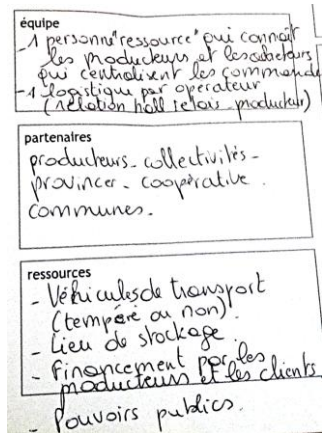 équipe
- 1 personne "ressource" qui connaît
les producteurs et les acheteurs
qui centralisent les commande
- 1 logistique par opérateur
(relation hall relais - producteurs)
partenaires
producteurs - collectivités -
provinces - coopérative.
communes.
ressources
- Véhicules de transport
(tempéré ou non).
- Lieu de stockage.
- financement par les
producteurs et les clients
- Pouvoirs publics.